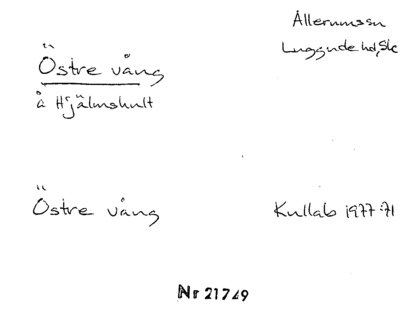 Östre vång
å Hjälmshult
Allerumssn
Luggude hd, Sk
Östre vång
Kullab 1977:71
Nr 21749